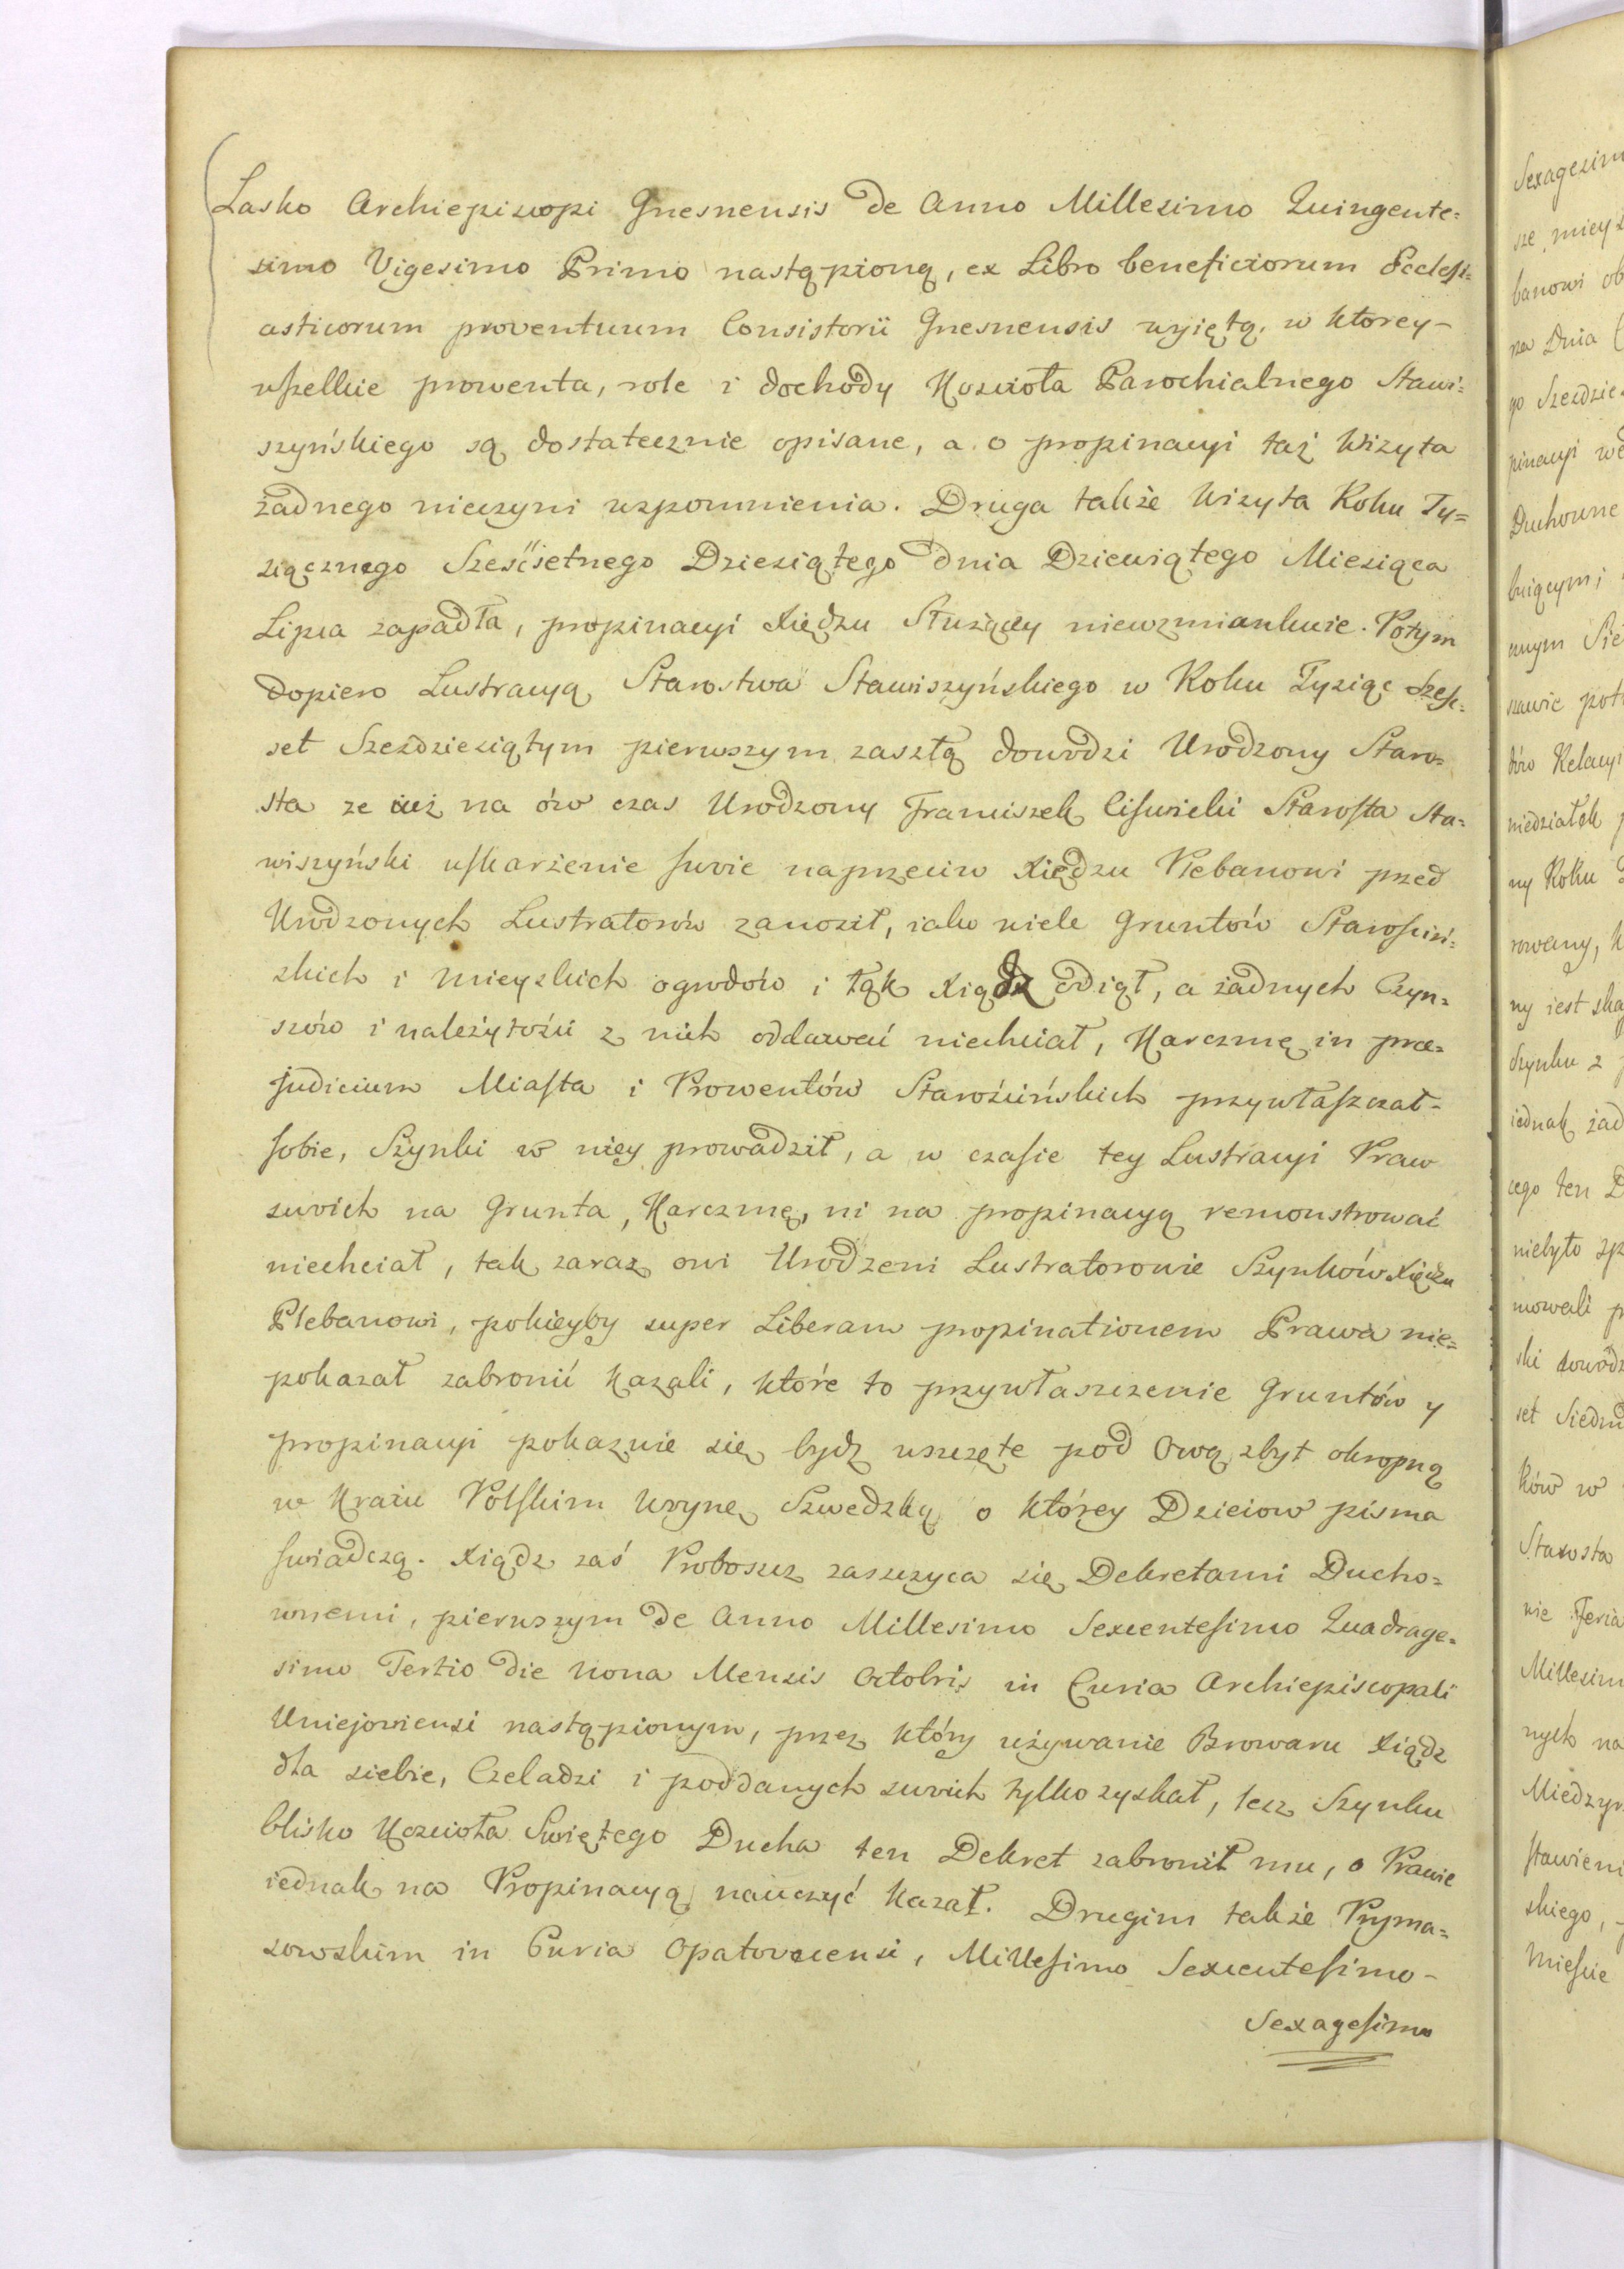 Lasko Archiepiscopi Gnesnensis de Anno Millesimo Quingente=
simo Vigesimo Primo nastąpioną, ex Libro beneficiorum Eccleſi=
asticorum proventuum Consistorii Gnesnensis wyiętą, w ktorey-
wſzelkie prowenta, role i dochody Kościoła Parochialnego Stawi=
szyńskiego są dostatecznie opisane, a o propinacyi taż Wizyta
żadnego nieczyni wzpomnienia. Druga także Wizyta Roku Ty=
siącznego Sześćsetnego Dziesiątego dnia Dziewiątego Miesiąca
Lipca zapadła, propinacyi Xiędzu Służący niewzmiankuie. Potym
dopiero Lustracyą Starostwa Stawiszyńskiego w Roku Tysiąc Szeſc=
set Sześdziesiątym pierwszym zaszłą dowodzi Urodzony Staro=
sta ze iuż na ów czas Urodzony Franciszek Ciſwicki Staroſta Sta=
wiszyński uſkarżenie ſwoie naprzeciw Xiędzu Plebanowi przed
Urodzonych Lustratorów zanosił, iako wiele Gruntów Staroſciń=
skich i mieyskich ogrodów i łąk Xiądz odiął, a żadnych Czyn=
szów i należytości z nich oddawać niechciał, Karczmę in prae=
judicium Miaſta i Prowentów Starościńskich przywłaſzczał-
ſobie, Szynki w niey prowadził, a w czaſie tey Lustracyi Praw
swoich na Grunta, Karczmę, ni na propinacyą remonstrować
niechciał, tak zaraz owi Urodzeni Lustratorowie Szynków Xiędzu
Plebanowi, pokieyby super Liberam propinationem Prawa nie=
pokazał zabronić kazali, które to przywłaszczenie Gruntów y
propinacyi pokazuie się bydź wszczęte pod Ową zbyt okropną
w Kraiu Polſkim woynę Szwedzką o którey Dzieiow pisma
ſwiadczą. Xiądz zaś Proboszcz zaszczyca się Dekretami Ducho=
wnemi, pierwszym de Anno Millesimo Sexcenteſimo Quadrage=
simo Tertio die Nona Mensis Octobris in Curia Archiepiscopali
Uniejoviensi nastąpionym, przez który używanie Browaru Xiądz
dla siebie, Czeladzi i poddanych swoich tylko zyskał, lecz Szynku
blisko Kościoła Swiętego Ducha ten Dekret zabronił mu, o Prawie
iednak na Propinacyą nauczyć kazał. Drugim także Pryma=
sowskim in Curia Opatoviensi, Milleſimo Sexcenteſimo-
Sexageſimo